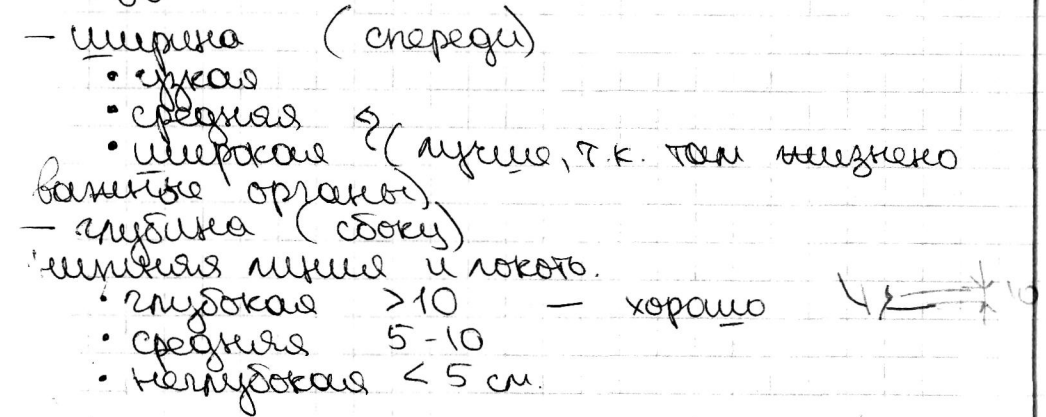 — ширина (спереди)
• узкая
• средняя
• широкая (лучше, т.к. там жизнено
важные органы)
— глубина (сбоку)
нижняя линия и локоть.
• глубокая >10 — хорошо 10
• средняя 5-10
• неглубокая < 5 см.